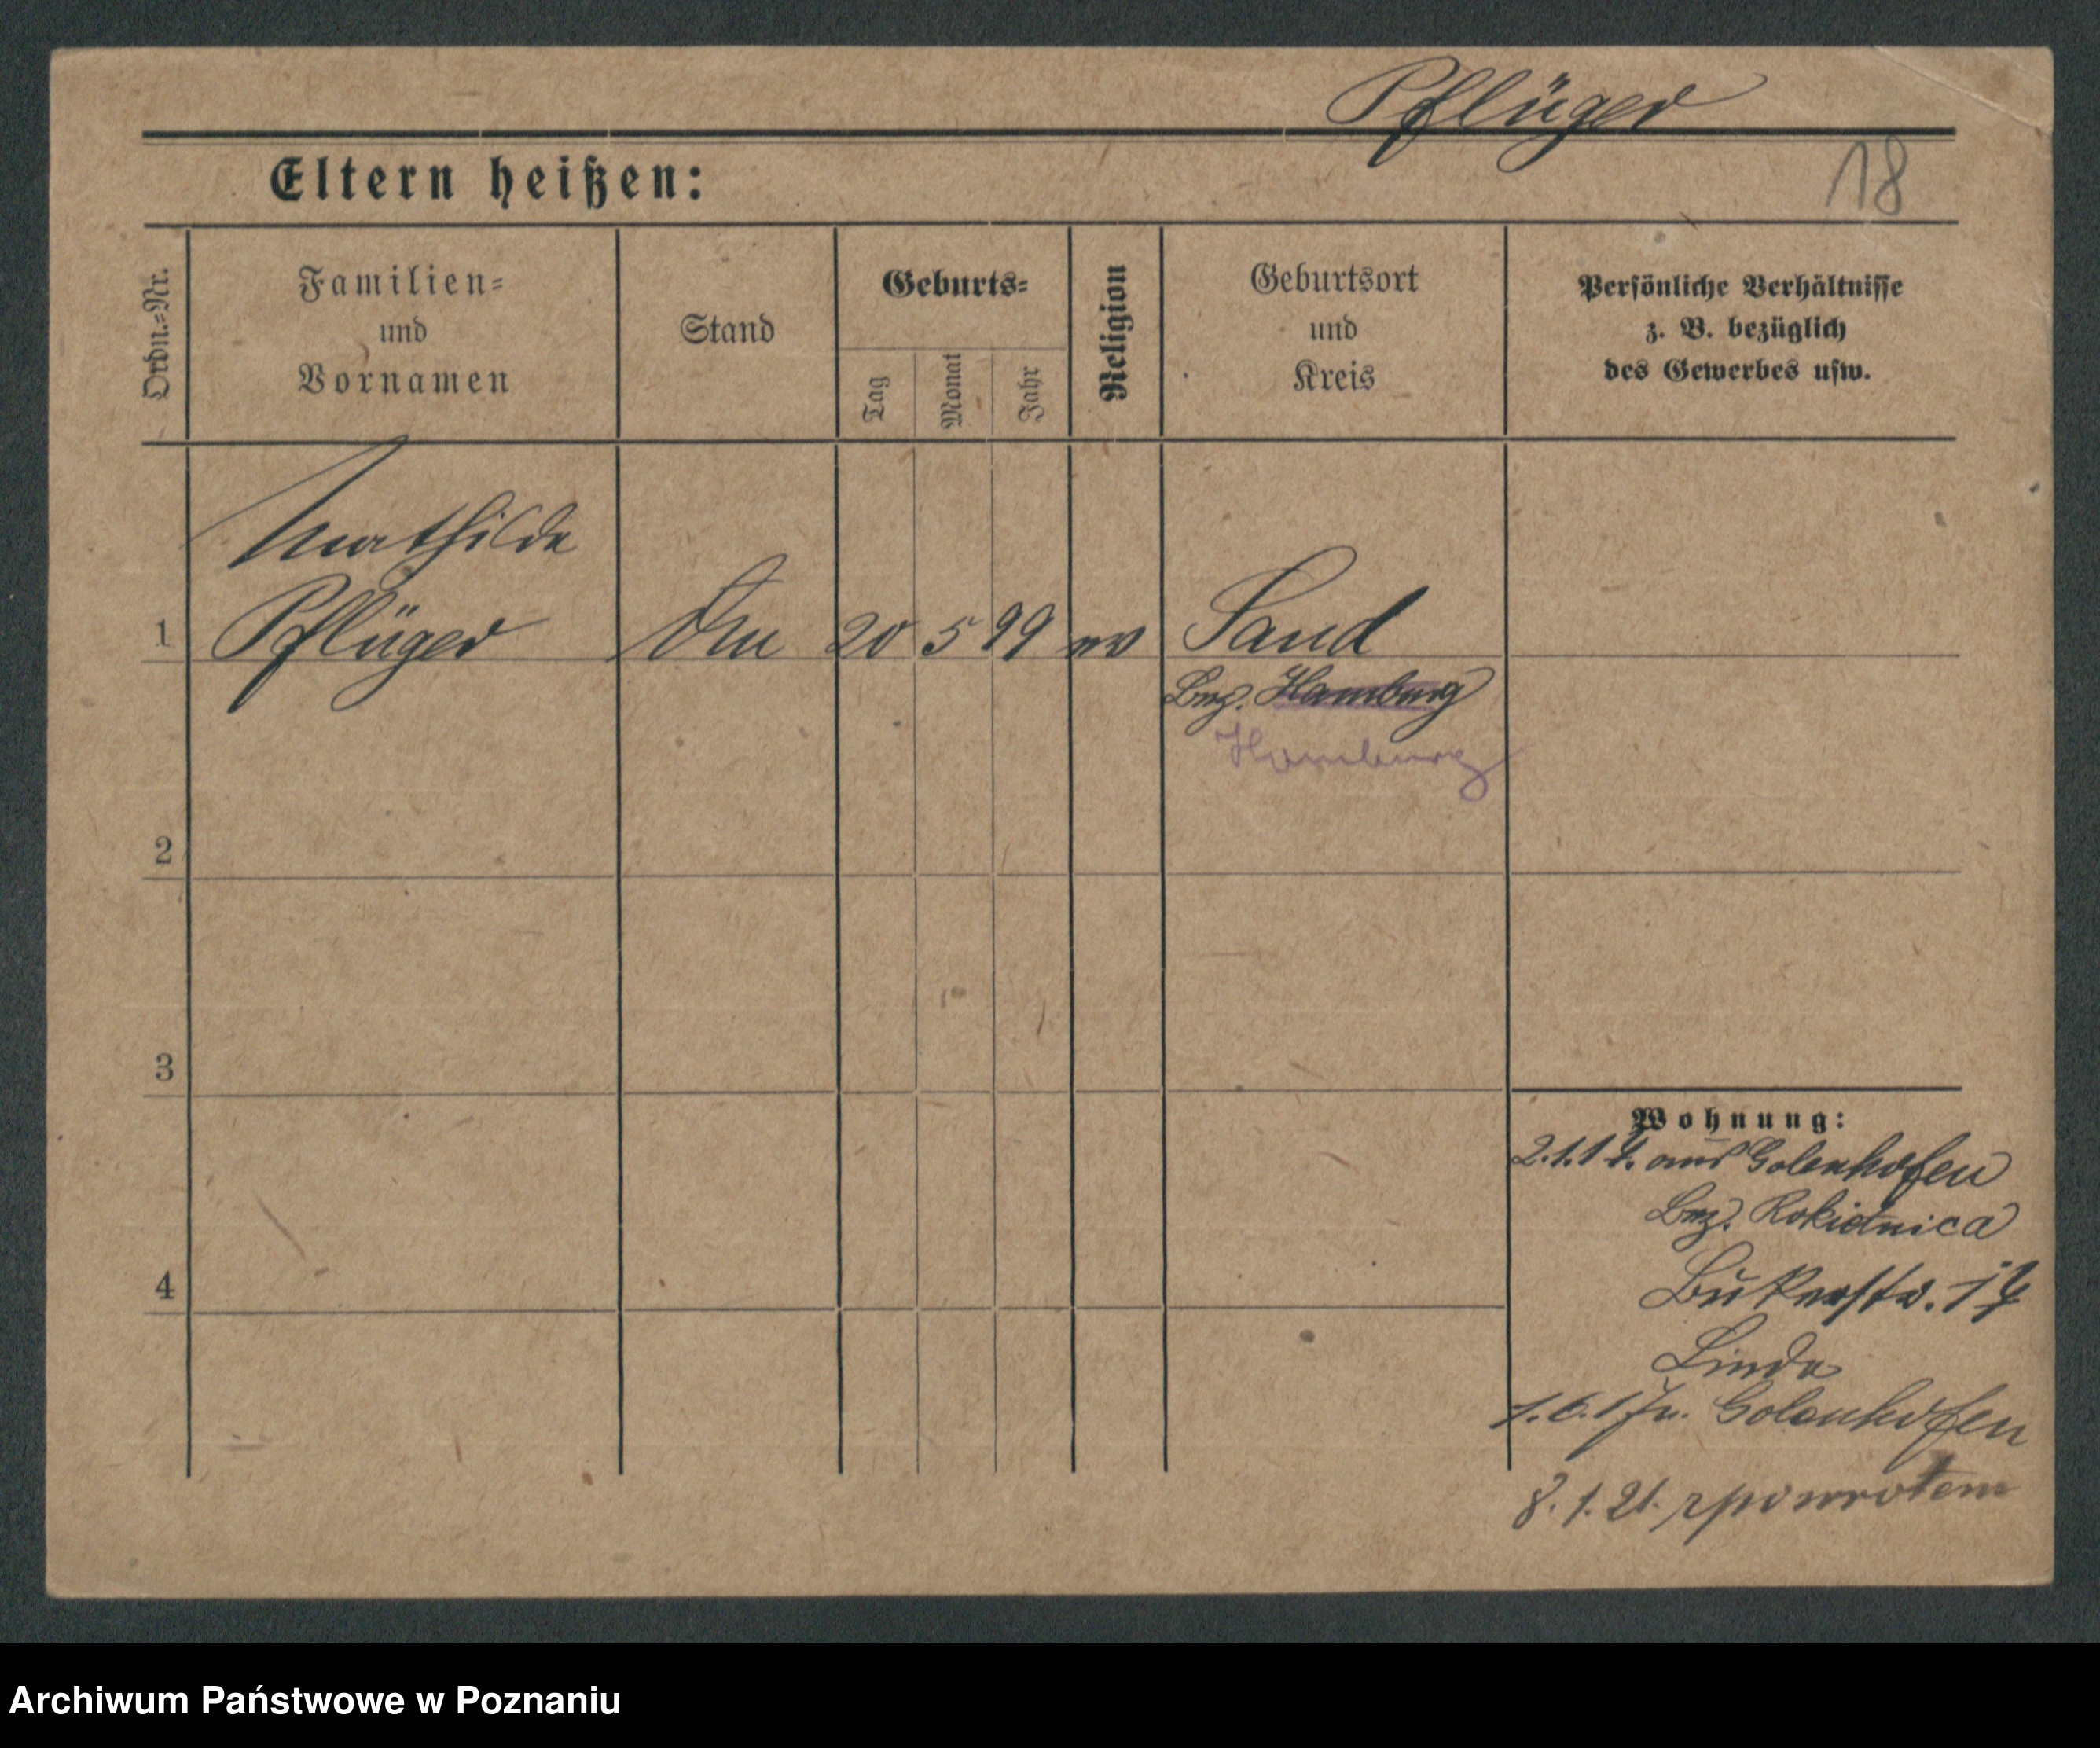 Pflüger
18
Eltern heißen:
Ordn.=Nr.
Familien=
und
Vornamen
Stand
Geburts=
Tag
Monat
Jahr
Religion
Geburtsort
und
Kreis
Persönliche Verhältnisse
z. B. bezüglich
des Gewerbes usw.
Mathilde
1 Pflüger 20 5 99 ev Sand
Bez. Hamburg
Hamburg
2
3
4
Wohnung:
2.1.17. aus Golenhofen
Bez. Rokietnica
Bukerstr. 17
Linde
1.6.17 n. Golenhofen
8.1.21. zpowrotem
Archiwum Państwowe w Poznaniu